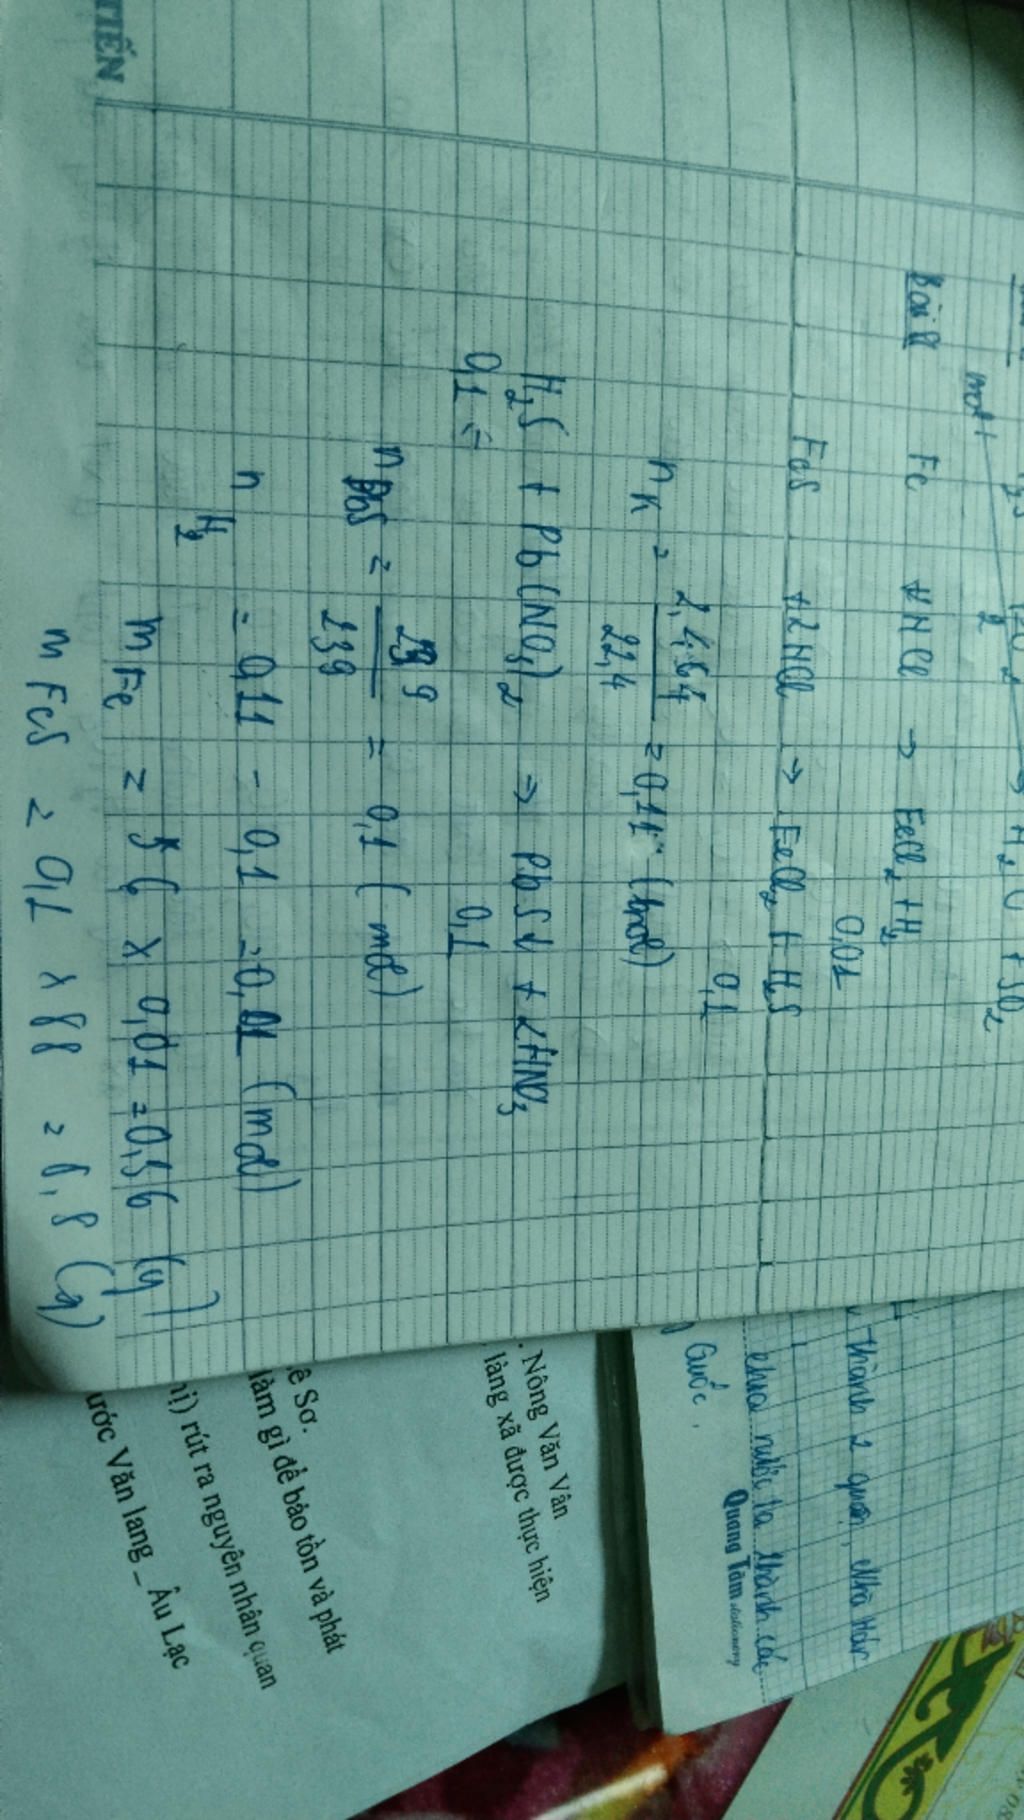 Bài 8 Fe + HCl → FeCl₂ + H₂
2
0,01
FeS + 2HCl → FeCl₂ + H₂S
0,1
n K = 2,464 / 22,4 = 0,11 (mol)
H₂S + Pb(NO₃)₂ → PbS↓ + 2HNO₃
0,1 = 0,1
n PbS = 23,9 / 239 = 0,1 (mol)
n H₂ = 0,11 - 0,1 = 0,01 (mol)
m Fe = 56 x 0,01 = 0,56 (g)
m FeS = 0,1 x 88 = 8,8 (g)
TIẾN
thành 2 quận, nhà Hán
chia nước ta thành các
Quốc,
Quang Tâm stationery
. Nông Văn Vân
làng xã được thực hiện
ê Sơ.
làm gì để bảo tồn và phát
hị) rút ra nguyên nhân quan
ước Văn lang – Âu Lạc